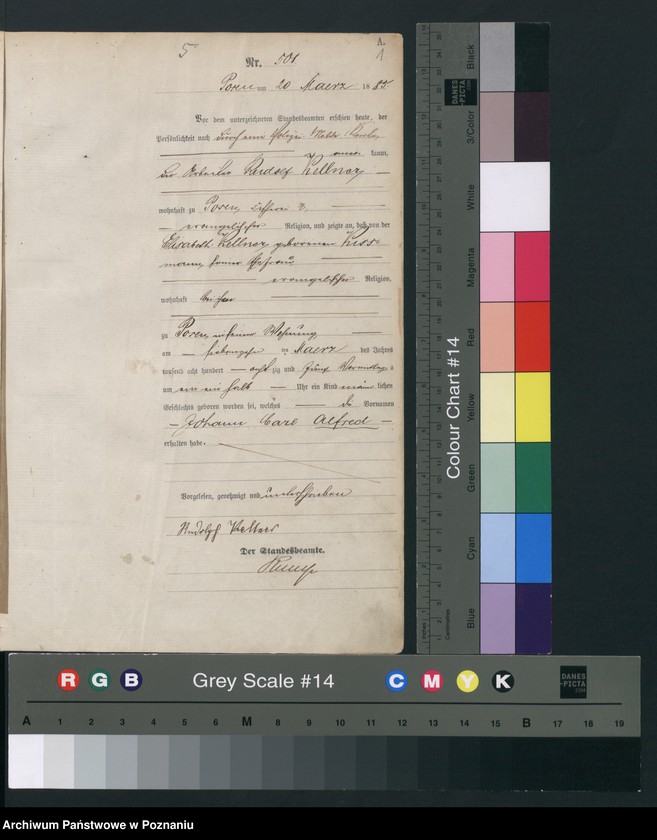 5
A.
1
Nr. 501
Posen am 20 Maerz 1885.
Vor dem unterzeichneten Standesbeamten erschien heute, der
Persönlichkeit nach durch eine
kannt,
der Arbeiter Rudolf Kellner
wohnhaft zu Posen,
evangelischer Religion, und zeigte an, daß von der
Elisabeth Kellner geborenen Kiss-
mann, seiner Ehefrau
evangelischer Religion,
wohnhaft bei ihm
zu Posen, in seiner Wohnung
am siebenzehn ten Maerz des Jahres
tausend acht hundert acht zig und fünf Vormittags
um ein ein halb Uhr ein Kind männ lichen
Geschlechts geboren worden sei, welches die Vornamen
Johann Carl Alfred
erhalten habe.
Vorgelesen, genehmigt und unterschrieben
Rudolph Kellner
Der Standesbeamte.
Inches
Centimetres
Colour Chart #14
Blue
Cyan
Green
Yellow
Red
Magenta
White
3/Color
Black
DANES
-PICTA
.COM
R G B
Grey Scale #14
C M Y K
DANES
-PICTA
.COM
A 1 2 3 4 5 6 M 8 9 10 11 12 13 14 15 B 17 18 19
Archiwum Państwowe w Poznaniu